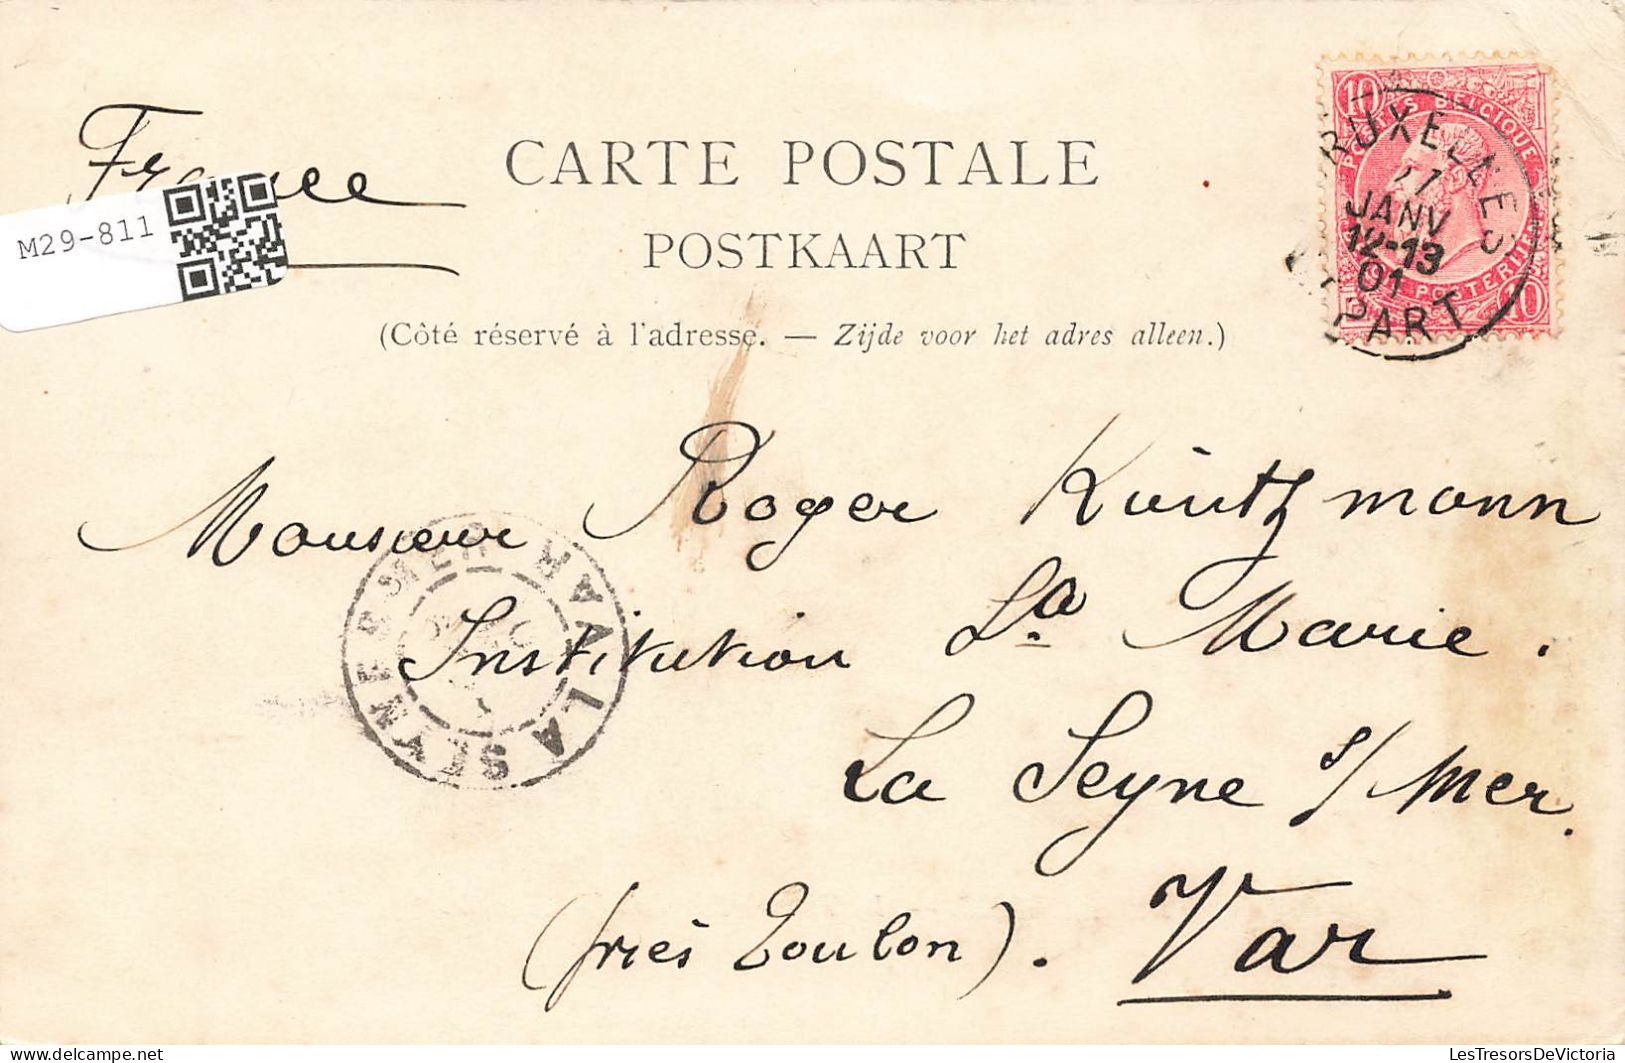 France
CARTE POSTALE
POSTKAART
(Côté réservé à l'adresse. — Zijde voor het adres alleen.)
M29-811
10
POSTES BELGIQUE
POSTERIJEN
10
RUXELLES
JANV
12-13
01
PART
Monsieur Roger Küntzmann
Institution Ste Marie.
La Seyne s/Mer.
(près Toulon). Var
LA SEYNE SUR MER VAR
LesTresorsDeVictoria
delcampe.net